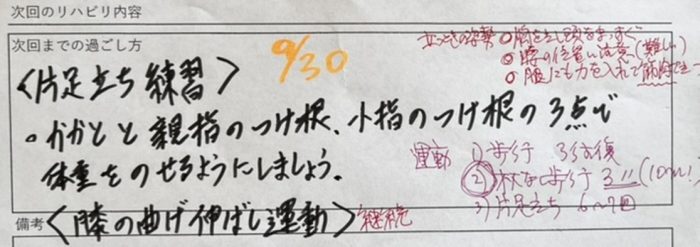 次回のリハビリ内容
次回までの過ごし方
9/30
立つときの姿勢 ○胸をを張し頭をまっすぐ
○腰の位置に注意(難しい)
○腹にも力を入れて筋肉で
<片足立ち練習>
・かかとと親指のつけ根、小指のつけ根の3点で
体重をのせるようにしましょう。
運動 1)歩行 3往復
2)杖なし歩行 3〃(10m!)
3)片足立ち 6〜7回
備考
<膝の曲げ伸ばし運動>継続